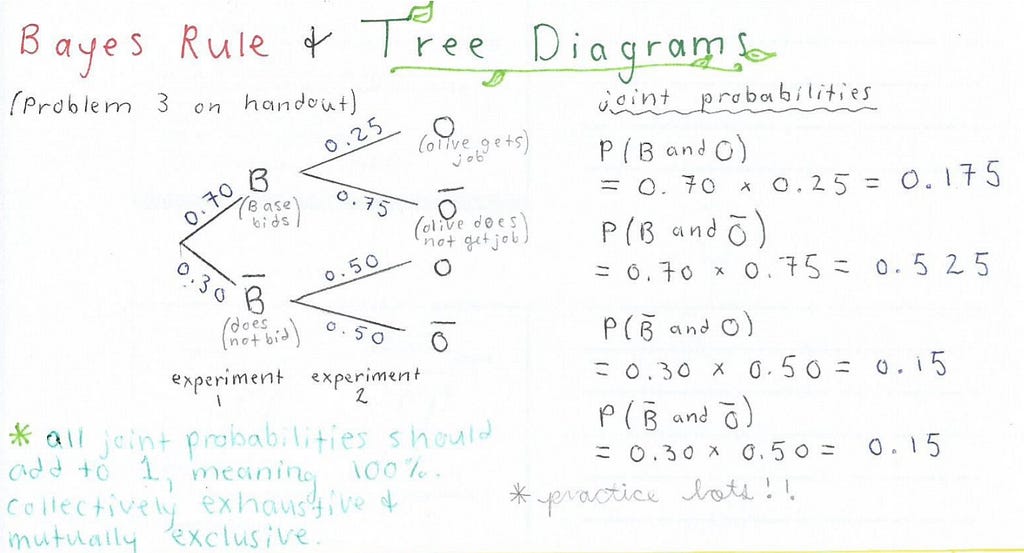 Bayes Rule & Tree Diagrams
(Problem 3 on handout)
0.25
O
(olive gets
job)
0.70
B
(Base
bids)
0.75
O̅
(olive does
not get job)
0.30
B̅
(does
not bid)
0.50
O
0.50
O̅
experiment
1
experiment
2
* all joint probabilities should
add to 1, meaning 100%.
collectively exhaustive &
mutually exclusive.
joint probabilities
P(B and O)
= 0.70 x 0.25 = 0.175
P(B and O̅)
= 0.70 x 0.75 = 0.525
P(B̅ and O)
= 0.30 x 0.50 = 0.15
P(B̅ and O̅)
= 0.30 x 0.50 = 0.15
* practice lots!!